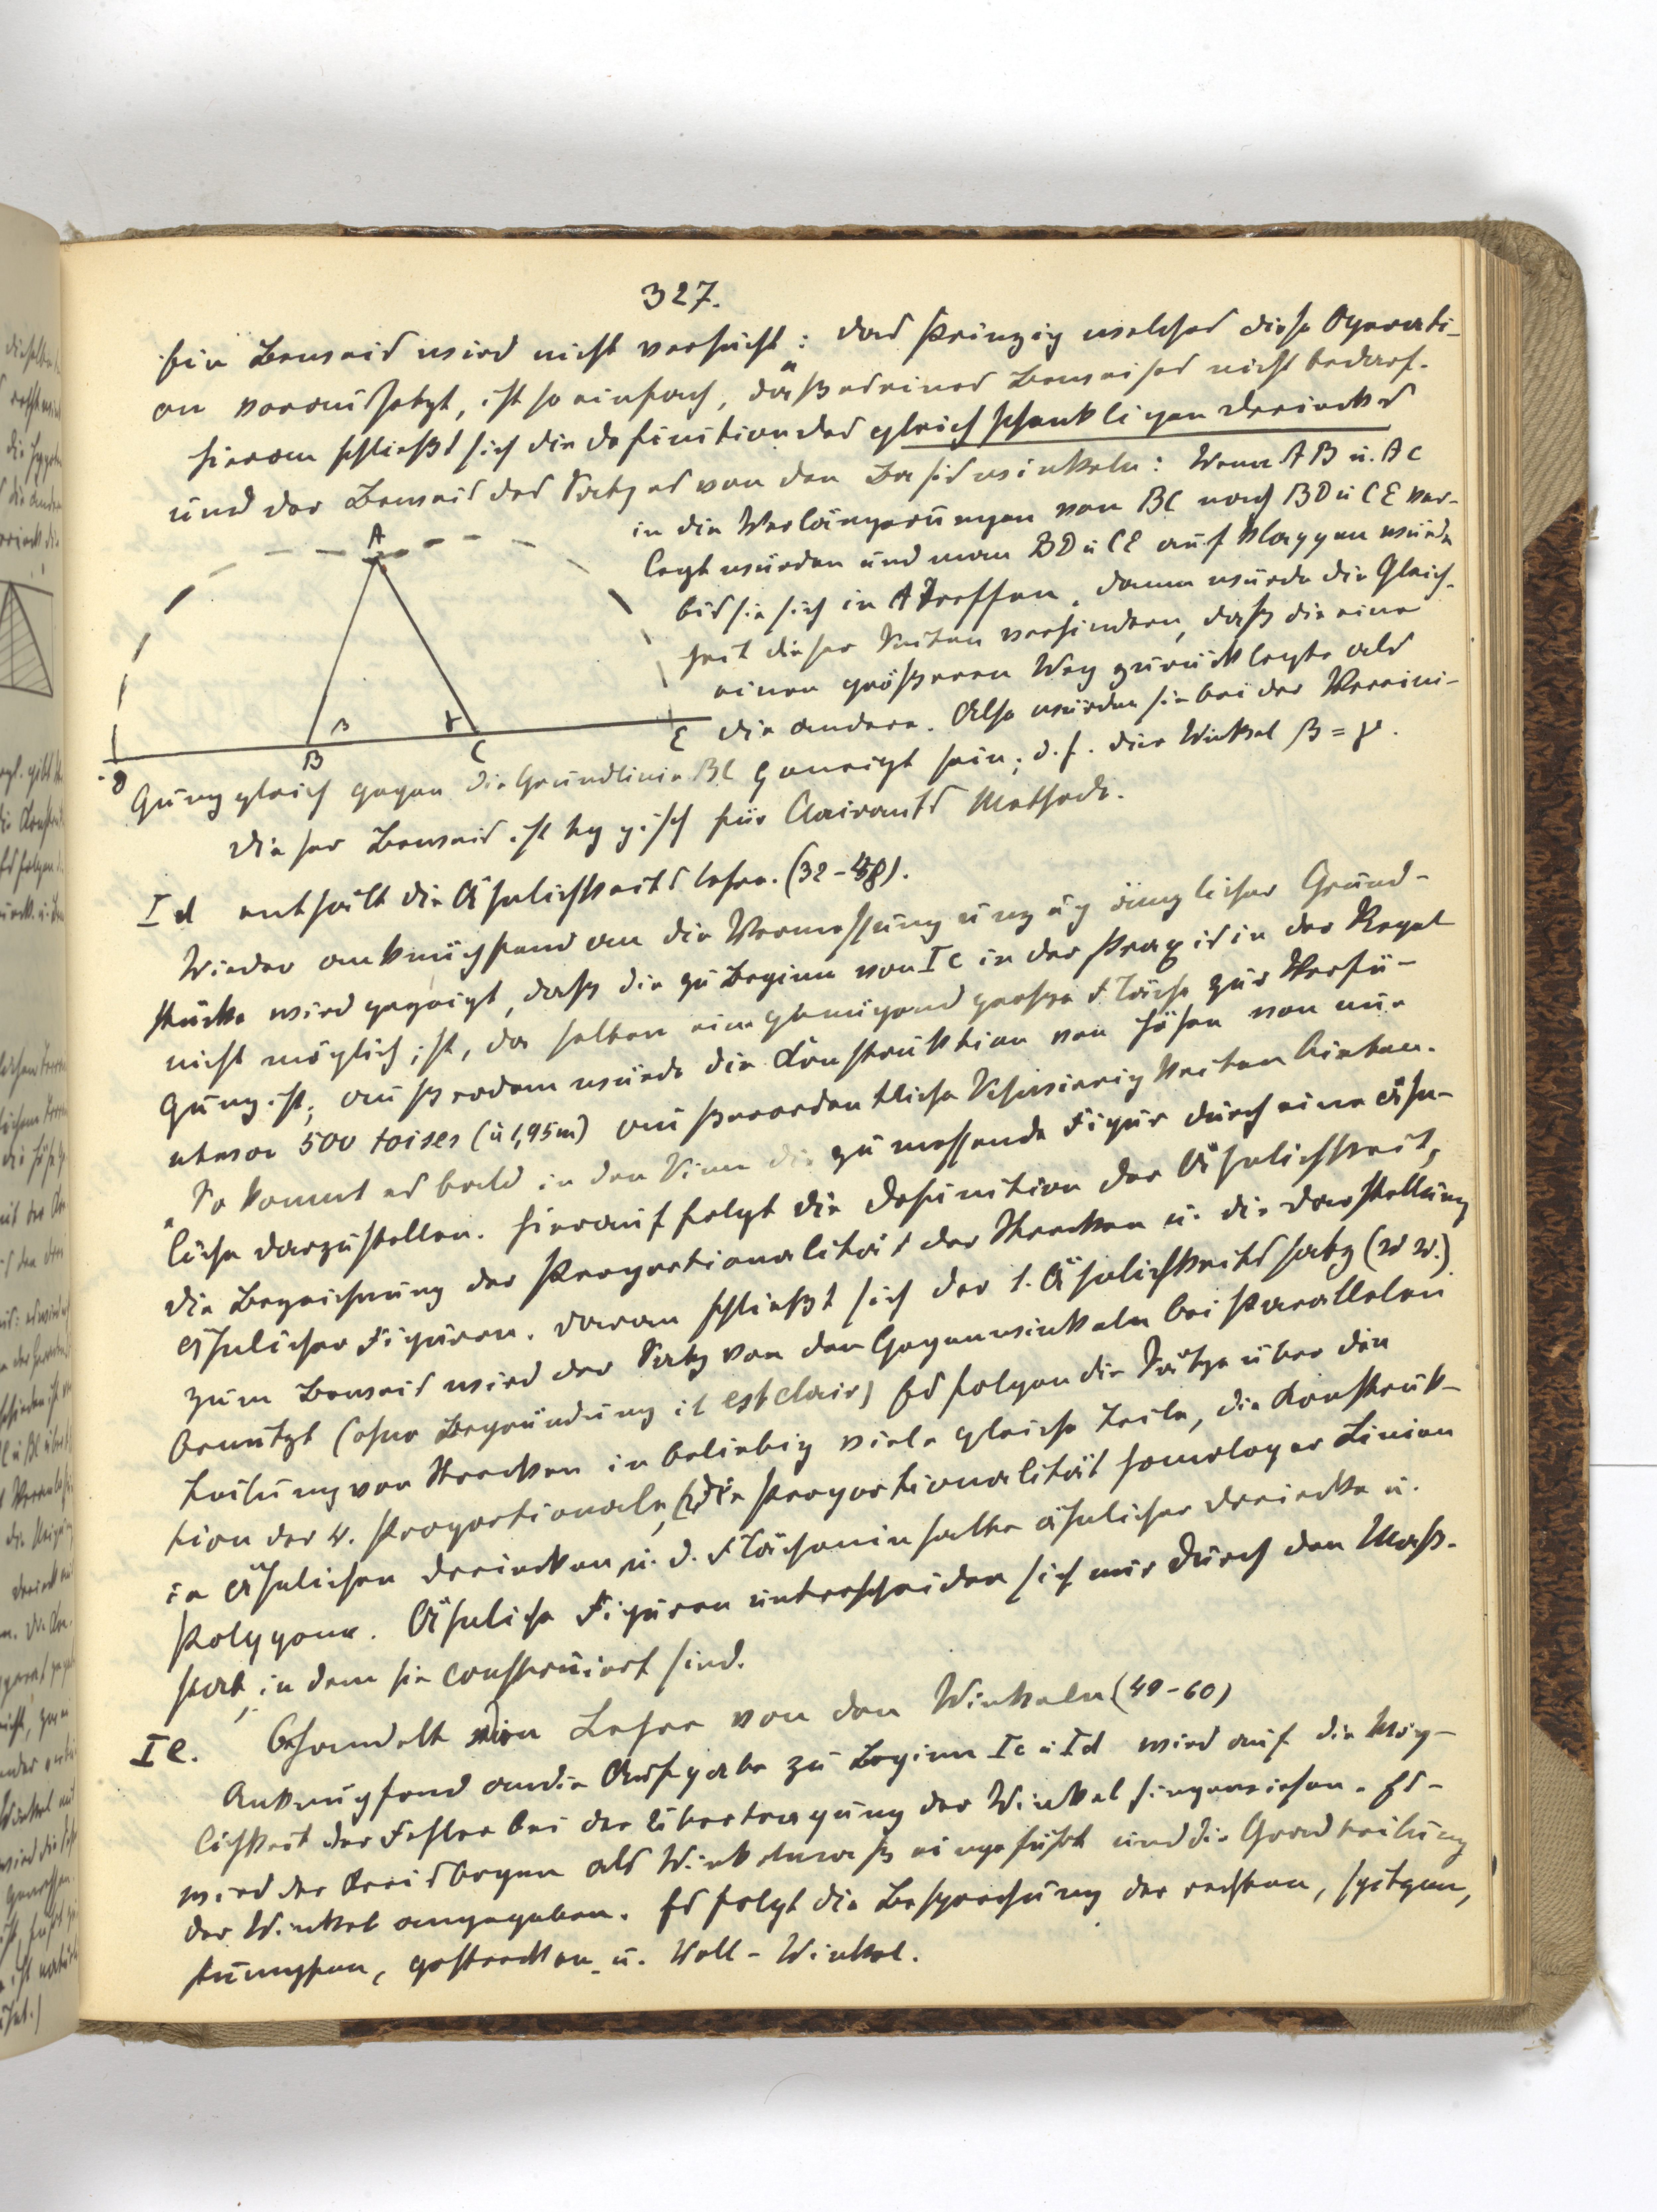 327.
Ein Beweis wird nicht versucht: „das Prinzip welches diese Operati-
on voraussetzt, ist so einfach, daß es eines Beweises nicht bedarf.
Hieran schließt sich die Definition des gleichschenkligen Dreiecks
und der Beweis des Satzes von den Basiswinkeln: Wenn AB u. AC
in die Verlängerungen von BC nach BD u CE ver-
legt würden und man BD u CE aufklappen würde
bis sie sich in A treffen, dann würde die Gleich-
heit dieser Seiten verhindern, daß die eine
einen größeren Weg zurücklegte als
die andere. Also würden sie bei der Vereini-
gung gleich gegen die Grundlinie BC geneigt sein; d.h. die Winkel β = γ.
A
β
γ
D
B
C
E
Dieser Beweis ist typisch für Clairauts Methode.
Id enthält die Ähnlichkeitslehre. (32-48).
Wieder anknüpfend an die Vermessung unzugänglicher Grund-
stücke wird gezeigt, daß die zu Beginn von Ic in der Praxis in der Regel
nicht möglich ist, da selten eine genügend große Fläche zur Verfü-
gung ist; außerdem würde die Konstruktion von Höhen von nur
etwa 500 toises (à 1,95m) außerordentliche Schwierigkeiten bieten.
„So kommt es bald in den Sinn die zu messende Figur durch eine ähn-
liche darzustellen. Hierauf folgt die Definition der Ähnlichkeit,
die Bezeichnung der Proportionalität der Strecken u. die Darstellung
ähnlicher Figuren. Daran schließt sich der 1. Ähnlichkeitssatz (w w.)
Zum Beweis wird der Satz von den Gegenwinkeln bei Parallelen
benutzt (ohne Begründung il est clair) Es folgen die Sätze über die
Teilung von Strecken in beliebig viele gleiche Teile, die Konstruk-
tion der 4. Proportionale, die Proportionalität homologer Linien
in ähnlichen Dreiecken, u. d. Flächeninhalte ähnlicher Dreiecke u.
Polygone. Ähnliche Figuren unterscheiden sich nur durch den Maß-
stab, in dem sie construiert sind.
Ie. Behandelt die Lehre von den Winkeln (49-60)
Anknüpfend an die Aufgabe zu Beginn Ic u Id wird auf die Mög-
lichkeit der Fehler bei der Übertragung der Winkel hingewiesen. Es
wird der Kreisbogen als Winkelmaß eingeführt und die Gradteilung
der Winkel angegeben. Es folgt die Besprechung der rechten, spitzen,
stumpfen, gestreckten u. Voll-Winkel.